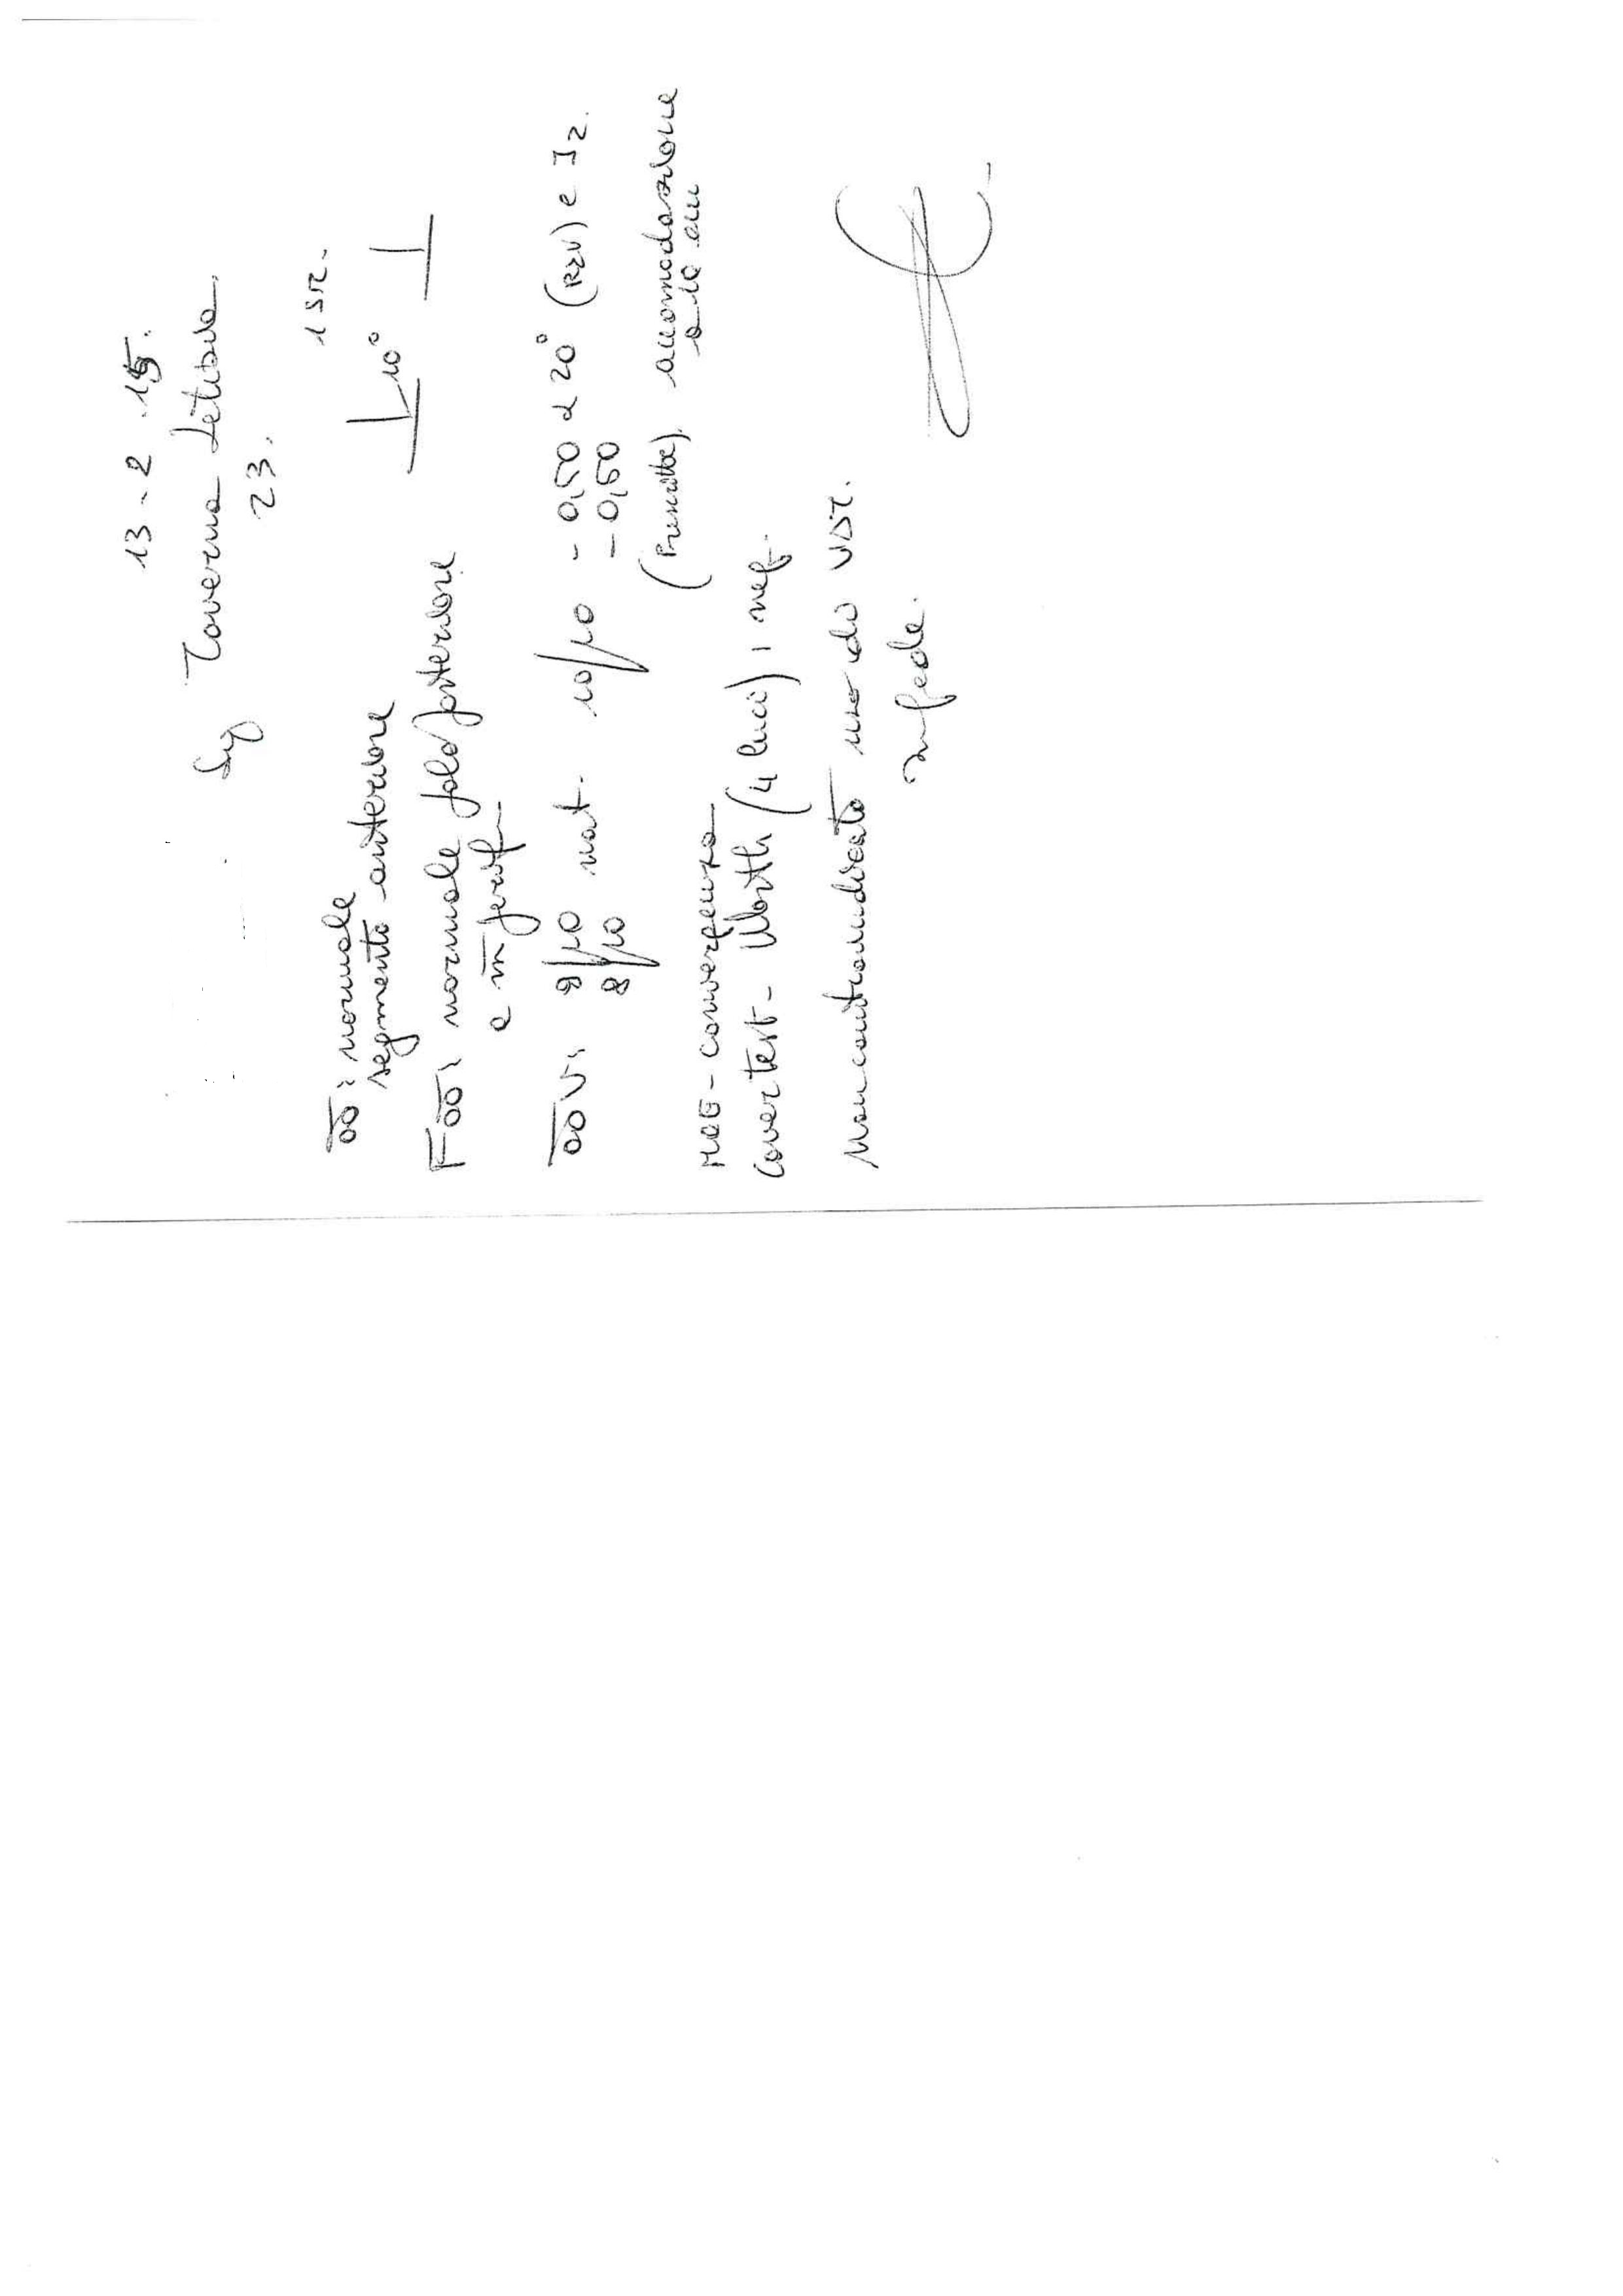 13 - 2 . 15.
Sig Taverna Letizia
23.
OO : normale
segmento anteriore
10°
FOO : normale polo posteriore
e in perif.
OO V: 9/10 nat. 10/10 - 0,50 α 20°
8/10 - 0,50
accomodazione
MOE - convergenza
Cover test - Worth (4 luci) : neg.
Non controindicato uso di VDT.
In fede.